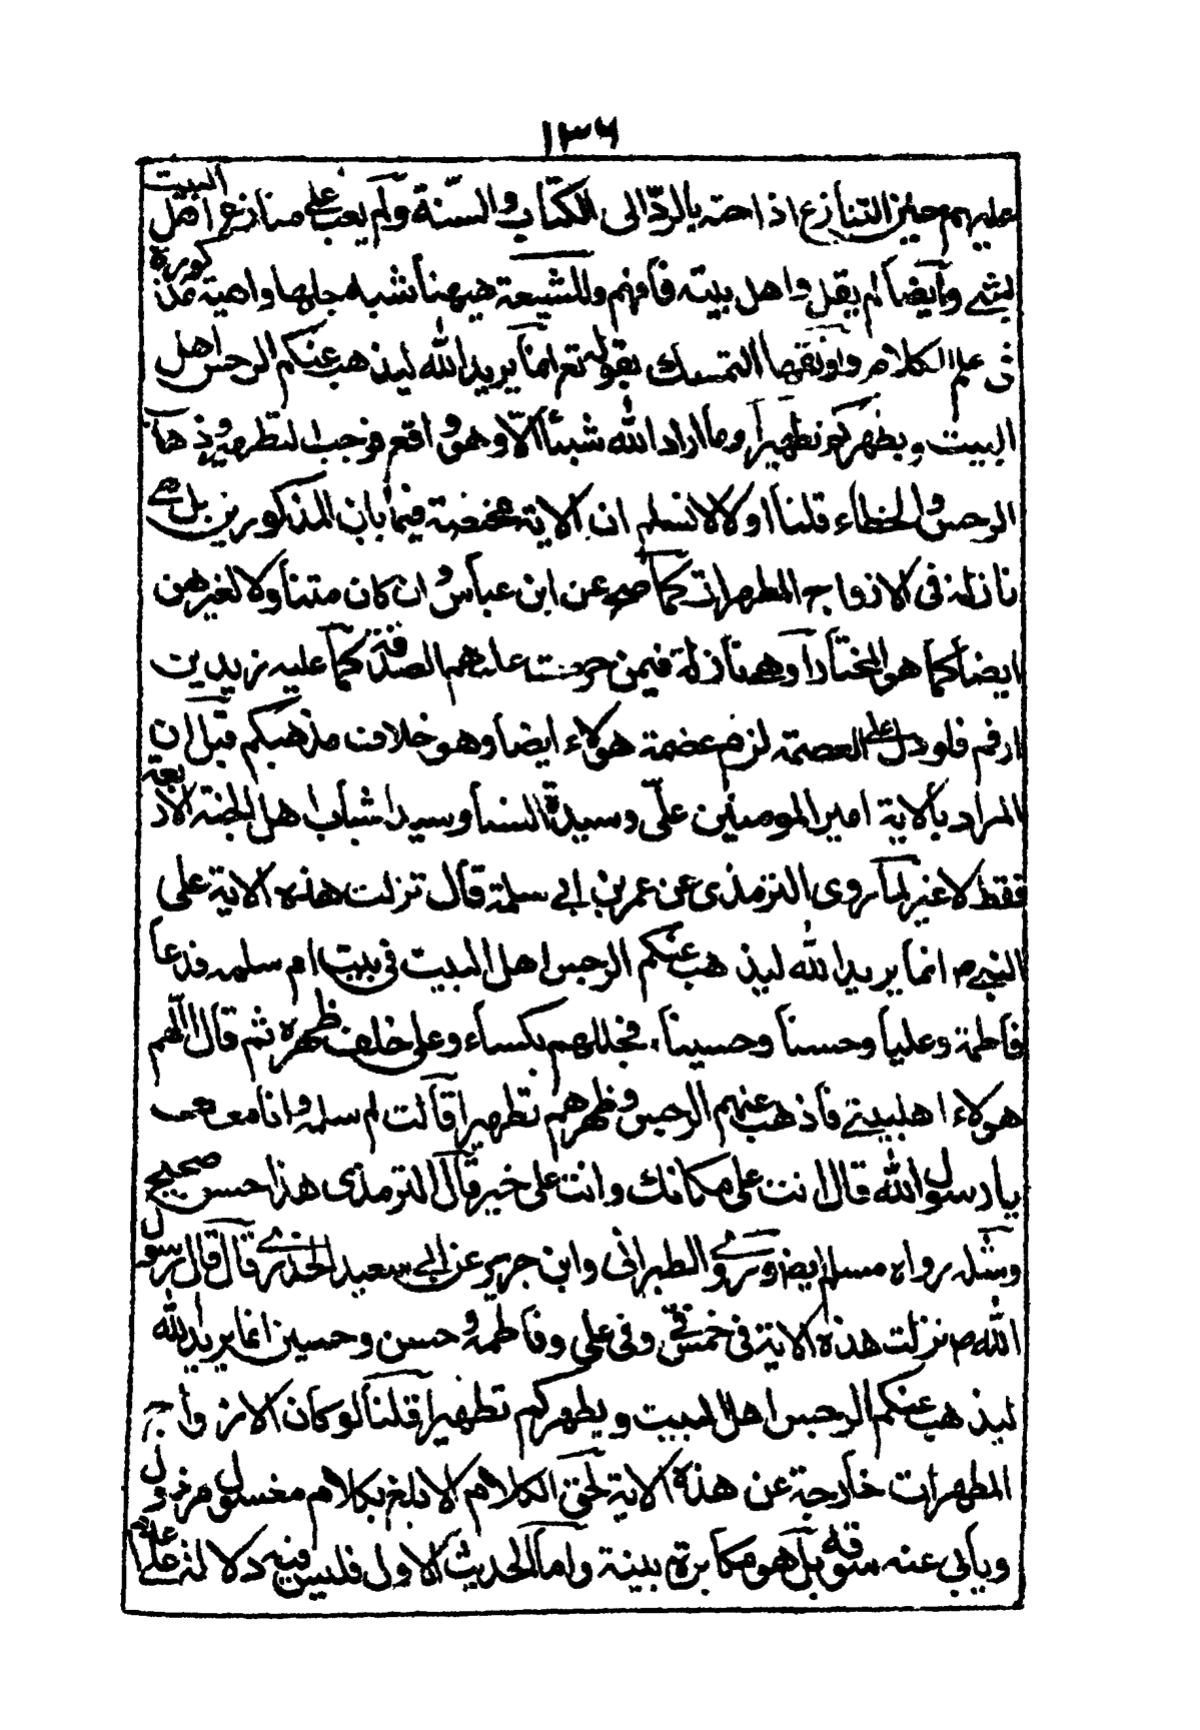 ١٣٦
عليهم حين التنازع اذا حته بالردّ الى الكتاب والسّنة ولم يعب على منازع اهل البيت
بشے وايضا لم يقل واهل بيته فافهم وللشيعة ههنا شبه جلها واهية مذكورة
فى علم الكلام واوثقها التمسك بقوله تعر انما يريد الله ليذهب عنكم الرجس اهل
البيت ويطهركم تطهيرا وما اراد الله شيئا الّا وهو واقع فوجب التطهير وذهاب
الرجس والخطاء قلنا اولا لا نسلم ان الاية مختصة فيما بان المذكورين بل هے
نازلة فى الازواج المطهرات كما صح عن ابن عباس وان كان متناولا لغيرهن
ايضا كما هو المختار او هے نازلة فيمن حرمت عليهم الصدقة كما عليه زيد بن
ارقم فلو دل على العصمة لزم عصمة هولاء ايضا وهو خلاف مذهبكم قبل ان
المراد بالاية امير المومنين علىّ وسيدة النسا وسيدا شباب اهل الجنة الاربعة
فقط لا غير لما روى الترمذى عن عمر بن ابى سلمة قال نزلت هذه الاية على
النبے م انما يريد الله ليذهب عنكم الرجس اهل البيت فى بيت ام سلمه فدعا
فاطمة وعليا وحسنا وحسينا فجللهم بكساء وعلى خلف ظهره ثم قال اللّهم
هولاء اهلبيتے فاذهب عنهم الرجس وطهرهم تطهيرا قالت ام سلمه وانا معهم
يا رسول الله قال انت على مكانك وانت على خير قال الترمذى هذا حسن صحيح
ومثله رواه مسلم ايضا وروے الطبرانى وابن جرير عن ابى سعيد الخدرے قال قال رسول
الله م نزلت هذه الاية فى خمسة فى وفى على وفاطمة وحسن وحسين انما يريد الله
ليذهب عنكم الرجس اهل البيت ويطهركم تطهيرا قلنا لو كان الازواج
المطهرات خارجة عن هذه الاية لحق الكلام الابلغ بكلام مغسول مرذول
ويابى عنه سوقه بل هو مكابرة بينة واما الحديث الاول فليس فيه دلالة على